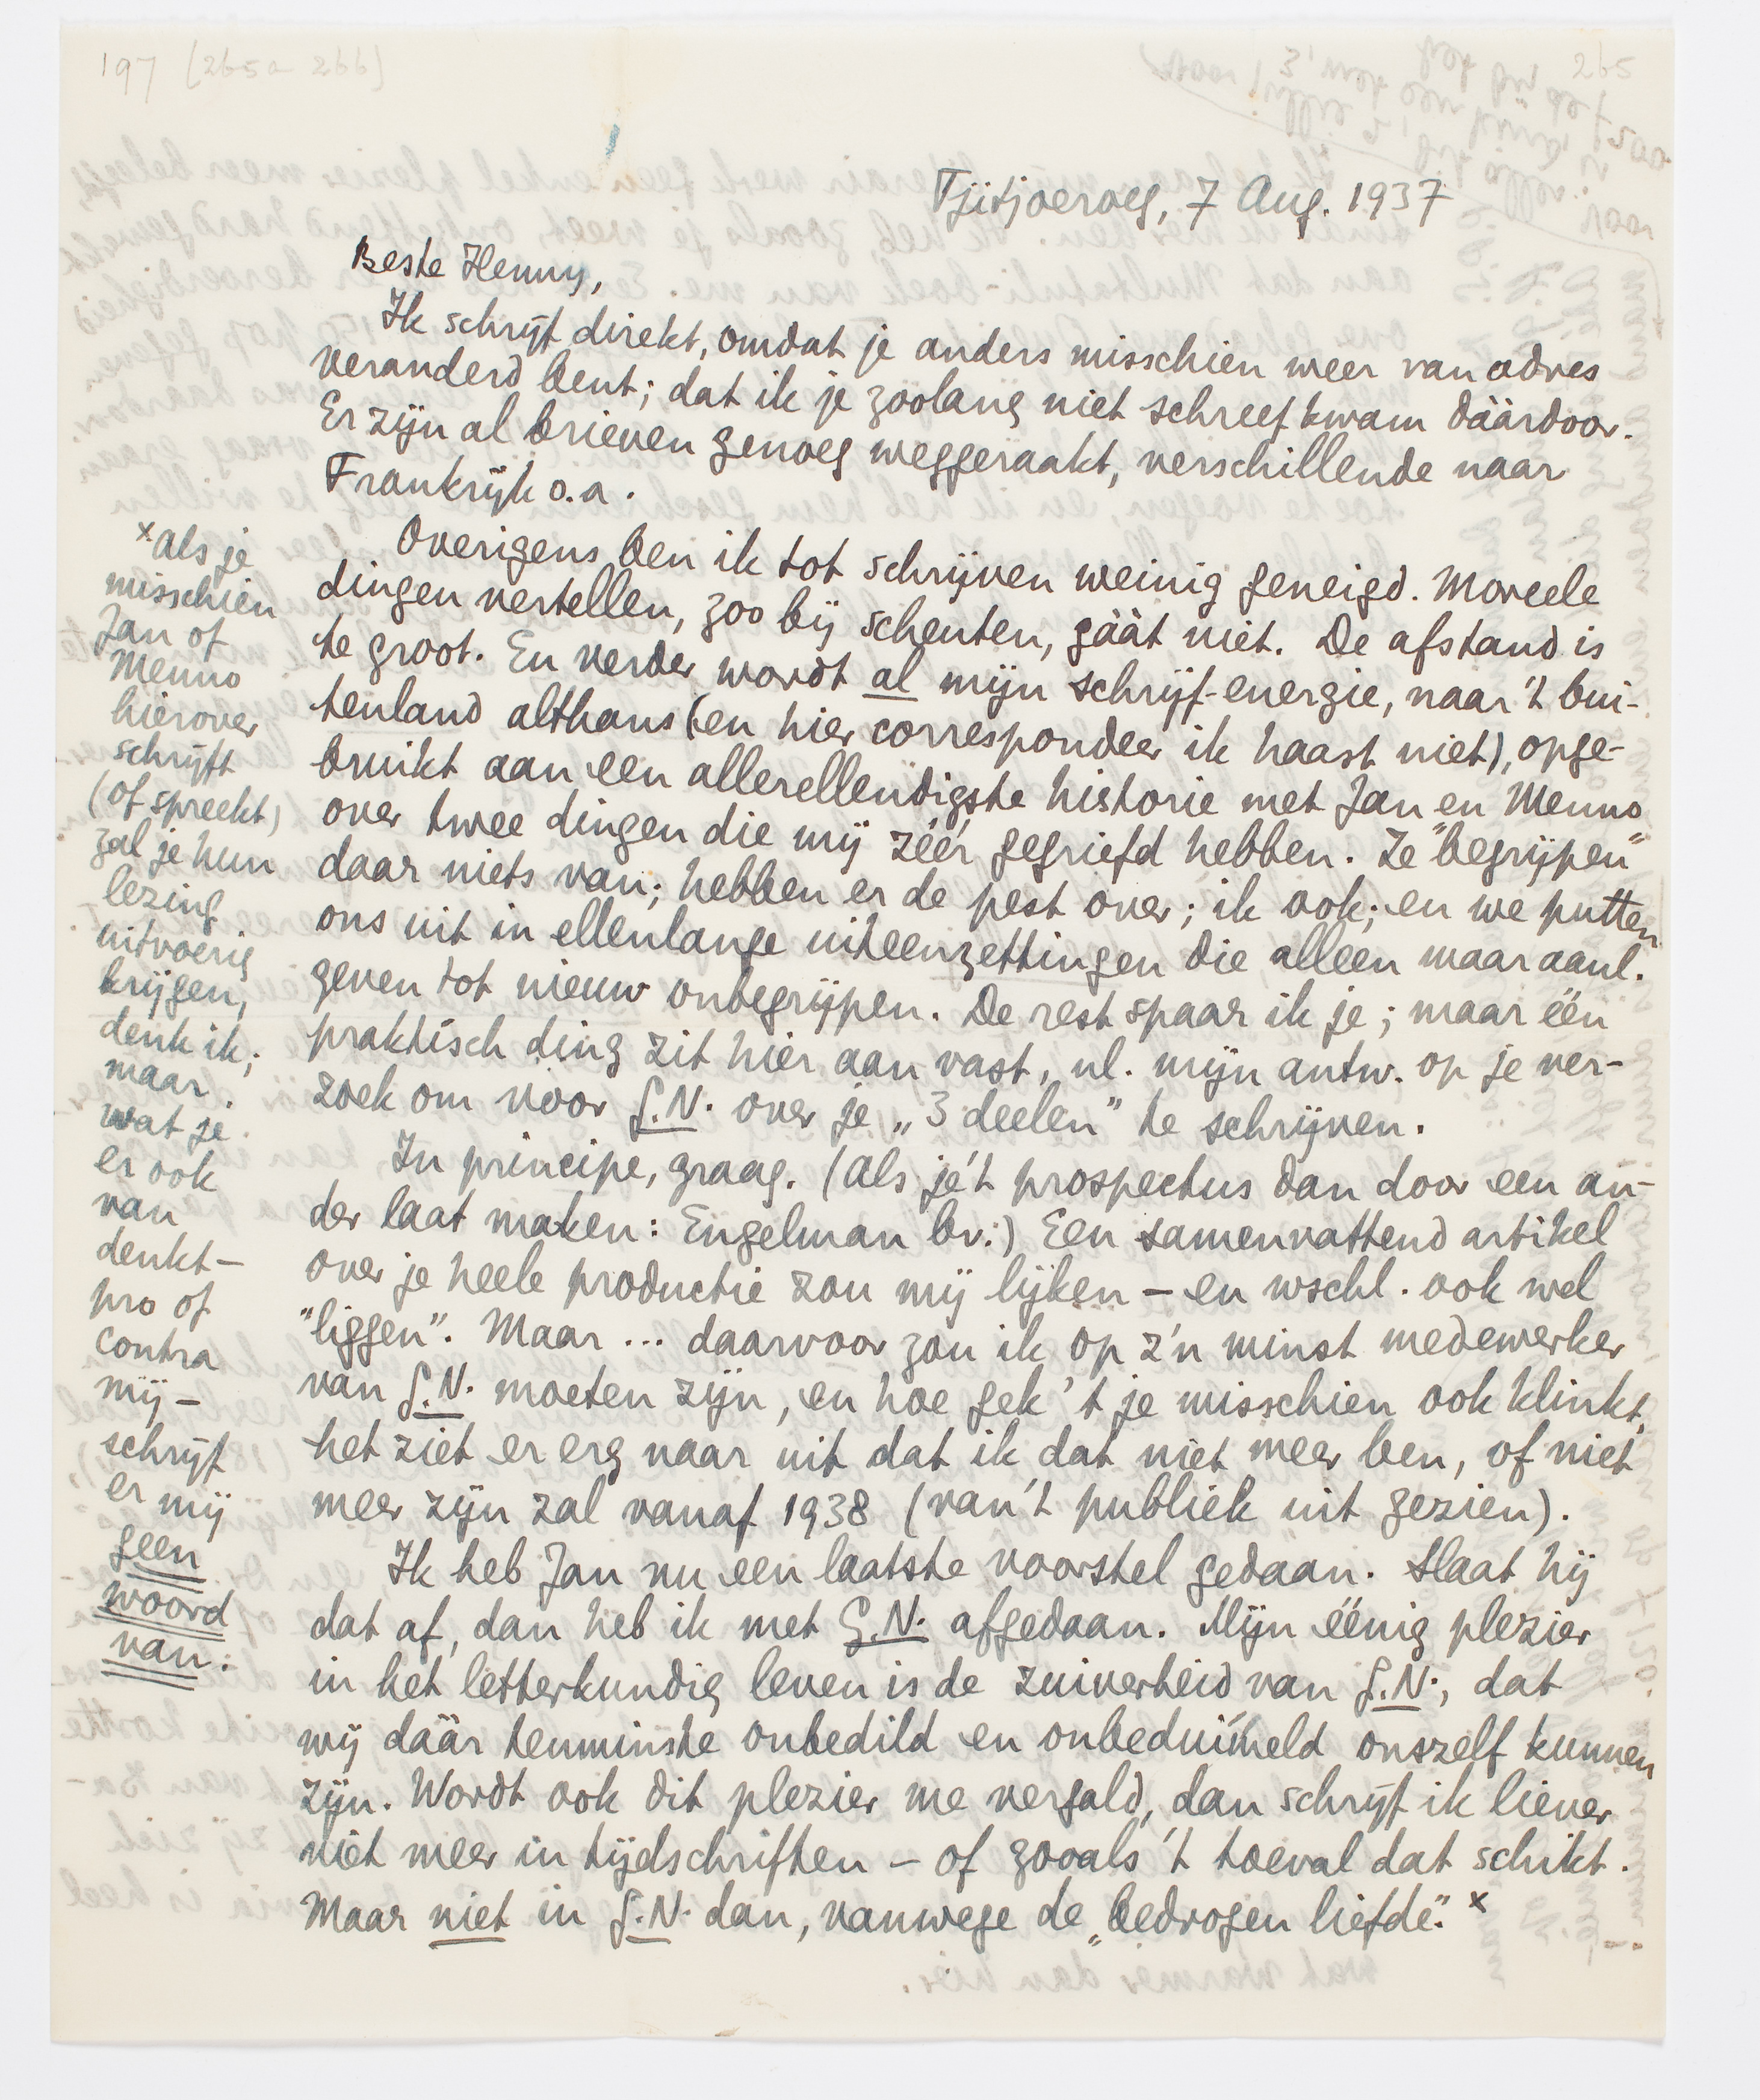 197 (265a 266)
265
Tjitjoeroeg, 7 Aug. 1937
Beste Henny,
Ik schrijf direkt, omdat je anders misschien weer van adres
veranderd bent; dat ik je zoolang niet schreef kwam dáárdoor.
Er zijn al brieven genoeg weggeraakt, verschillende naar
Frankrijk o.a.
Overigens ben ik tot schrijven weinig geneigd. Moreele
dingen vertellen, zoo bij scheuten, gáát niet. De afstand is
te groot. En verder wordt al mijn schrijf-energie, naar 't bui-
tenland althans (en hier correspondeer ik haast niet), opge-
bruikt aan een allerellendigste historie met Jan en Menno
over twee dingen die mij zéér gegriefd hebben. Ze "begrijpen"
daar niets van; hebben er de pest over; ik ook; en we putten
ons uit in ellenlange uiteenzettingen die alleen maar aanl.
geven tot nieuw onbegrijpen. De rest spaar ik je; maar één
praktisch ding zit hier aan vast, nl. mijn antw. op je ver-
zoek om voor G.N. over je „3 deelen" te schrijven.
In principe, graag. (Als je 't prospectus dan door een an-
der laat maken: Engelman bv.) Een samenvattend artikel
over je heele productie zou mij lijken – en wschl. ook wel
"liggen". Maar ... daarvoor zou ik op z'n minst medewerker
van G.N. moeten zijn, en hoe gek 't je misschien ook klinkt,
het ziet er erg naar uit dat ik dat niet meer ben, of niet
meer zijn zal vanaf 1938 (van 't publiek uit gezien).
Ik heb Jan nu een laatste voorstel gedaan. Slaat hij
dat af, dan heb ik met G.N. afgedaan. Mijn éénig plezier
in het letterkundig leven is de zuiverheid van G.N., dat
wij dáár tenminste onbedild en onbeduimeld onszelf kunnen
zijn. Wordt ook dit plezier me vergald, dan schrijf ik liever
niet meer in tijdschriften – of zooals 't toeval dat schikt.
Maar niet in G.N. dan, vanwege de „bedrogen liefde". x
x Als je
misschien
Jan of
Menno
hierover
schrijft
(of spreekt)
zal je hun
lezing
uitvoerig
krijgen,
denk ik;
maar
wat je
er ook
van
denkt –
pro of
contra
mij –
schrijf
er mij
geen
woord
van.